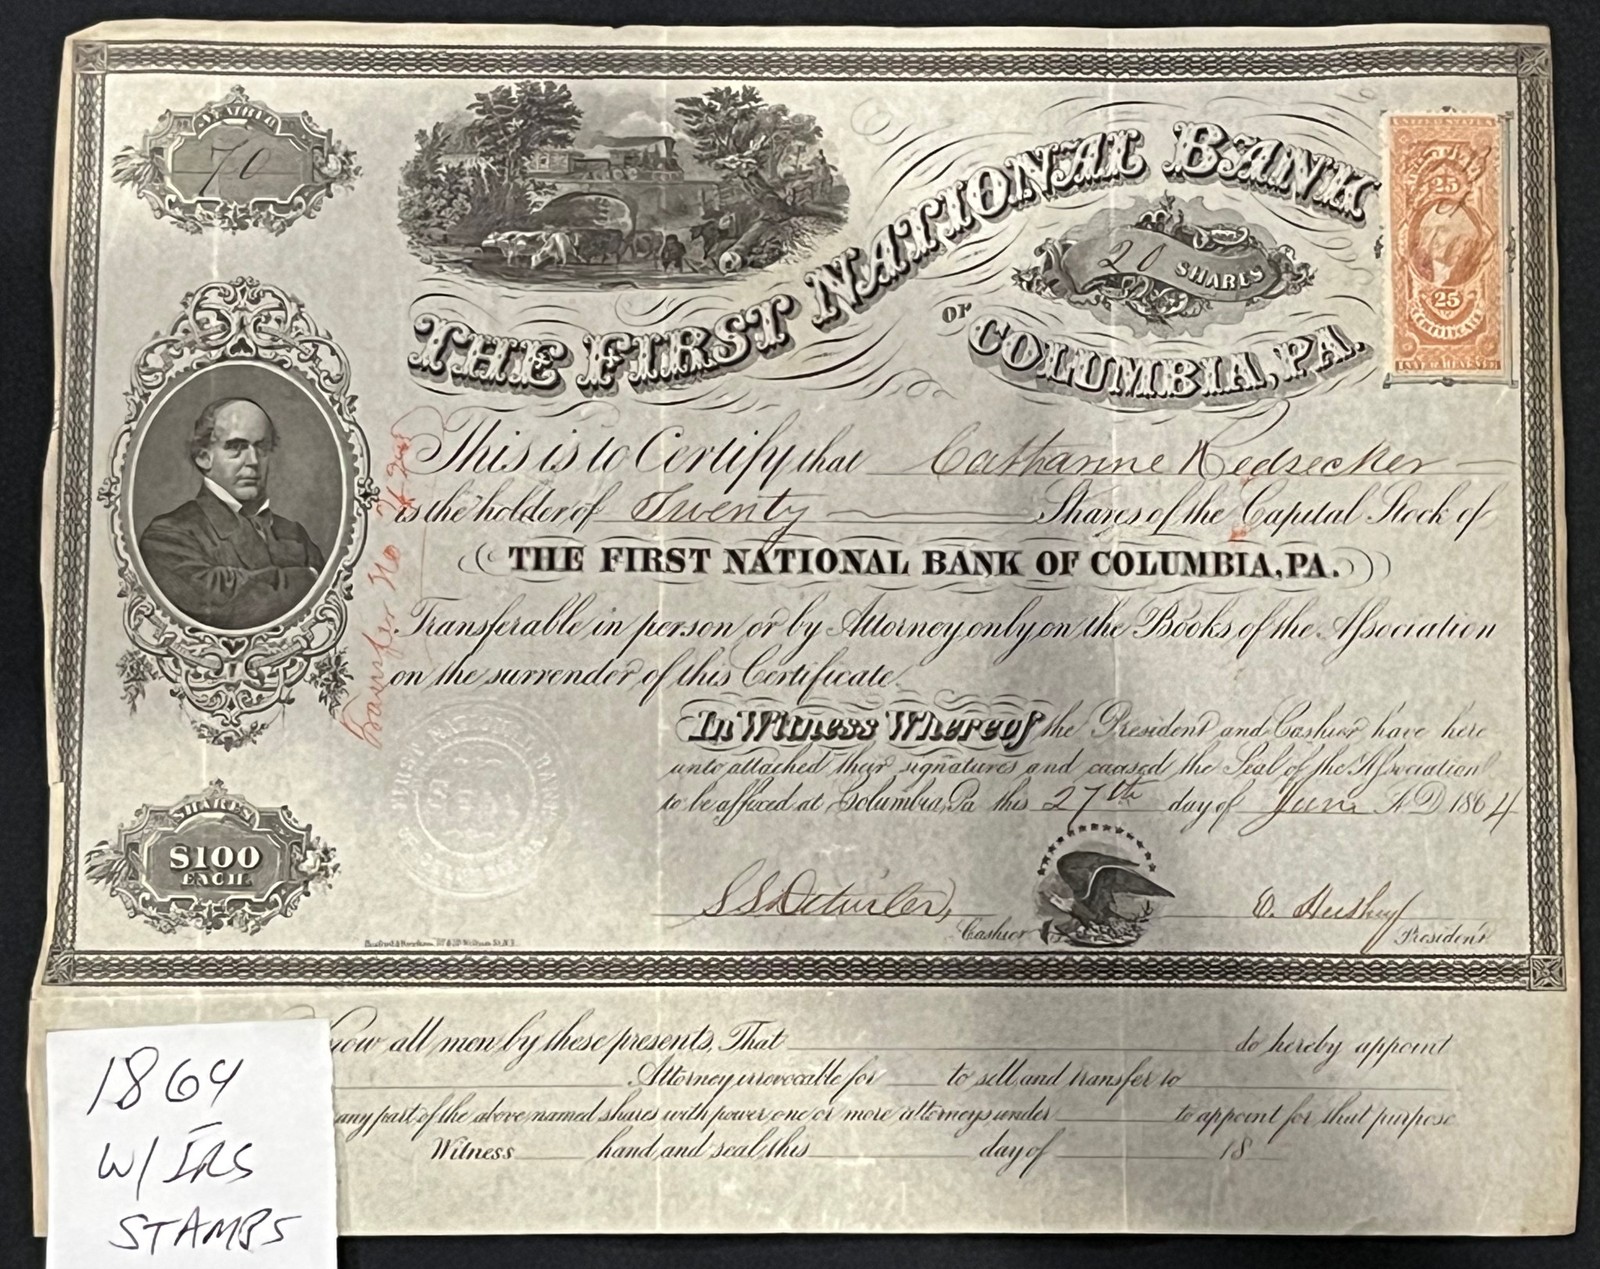 NUMBER
70
THE FIRST NATIONAL BANK
OF
COLUMBIA, PA.
20 SHARES
UNITED STATES
25
25
CERTIFICATE
INTER. REVENUE
This is to Certify that Catharine Redsecker
is the holder of Twenty Shares of the Capital Stock of
THE FIRST NATIONAL BANK OF COLUMBIA, PA.
Transferable in person or by Attorney only on the Books of the Association
on the surrender of this Certificate.
Transfer No
In Witness Whereof the President and Cashier have here
unto attached their signatures and caused the Seal of the Association
to be affixed at Columbia, Pa this 27th day of June A.D. 1864
SHARES
$100
EACH.
S S Detwiler, Cashier
E. Hershey President
Know all men by these presents, That do hereby appoint
Attorney irrevocable for to sell and transfer to
any part of the above named shares with power, one or more attorneys under to appoint for that purpose
Witness hand and seal this day of 18
1864
W/ IRS
STAMPS